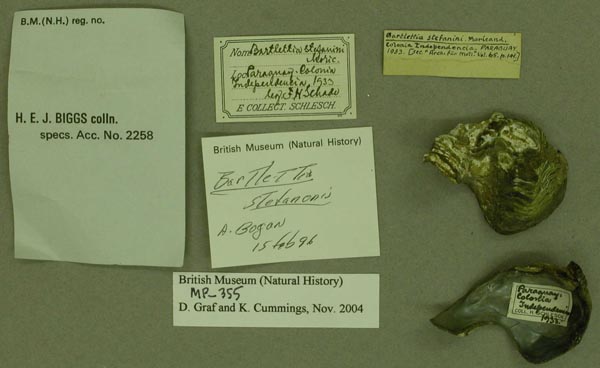 B.M.(N.H.) reg. no.
H. E. J. BIGGS colln.
specs. Acc. No. 2258
Nom. Bartlettia stefanini
Moric.
Loc. Paraguay. Colonia
Independencia, 1933.
Leg. F. H. Schade
E COLLECT. SCHLESCH.
Bartlettia stefanini. Moricand.
Colonia Independencia, PARAGUAY
1933.
British Museum (Natural History)
Bartlettia
stefanonis
A. Bogan
15 feb 96
British Museum (Natural History)
MP-355
D. Graf and K. Cummings, Nov. 2004
Paraguay.
Colonia
Independencia
1933.